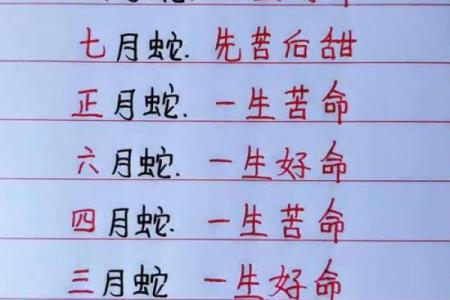 七月蛇.先苦后甜
正月蛇.一生苦命
六月蛇.一生好命
四月蛇.一生苦命
三月蛇 一生好命